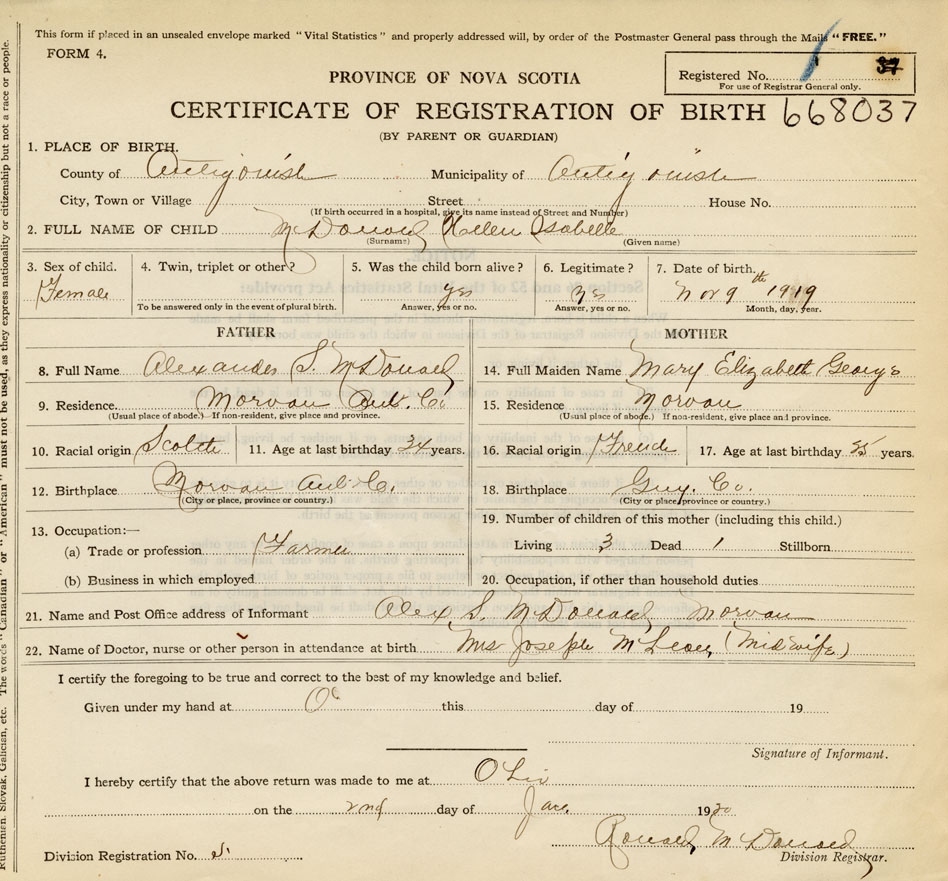 This form if placed in an unsealed envelope marked "Vital Statistics" and properly addressed will, by order of the Postmaster General pass through the Mails "FREE."
FORM 4.
Registered No. 37
For use of Registrar General only.
PROVINCE OF NOVA SCOTIA
CERTIFICATE OF REGISTRATION OF BIRTH 668037
(BY PARENT OR GUARDIAN)
1. PLACE OF BIRTH.
County of Antigonish Municipality of Antigonish
City, Town or Village Street House No.
(If birth occurred in a hospital, give its name instead of Street and Number)
2. FULL NAME OF CHILD McDonald Hellen Isabelle
(Surname) (Given name)
3. Sex of child. 4. Twin, triplet or other? 5. Was the child born alive? 6. Legitimate? 7. Date of birth.
Female yes yes Nov 9th 1919
To be answered only in the event of plural birth. Answer, yes or no. Answer, yes or no. Month, day, year.
FATHER MOTHER
8. Full Name Alexander S. McDonald 14. Full Maiden Name Mary Elizabeth George
9. Residence. Morvan Ant. Co 15. Residence Morvan
(Usual place of abode.) If non-resident, give place and province. (Usual place of abode.) If non-resident, give place and province.
10. Racial origin Scotch 11. Age at last birthday 34 years. 16. Racial origin French 17. Age at last birthday 35 years.
12. Birthplace Morvan Ant. Co. 18. Birthplace Guy. Co.
(City or place, province or country.) (City or place, province or country.)
13. Occupation:— 19. Number of children of this mother (including this child.)
(a) Trade or profession Farmer Living 3 Dead 1 Stillborn
(b) Business in which employed 20. Occupation, if other than household duties
21. Name and Post Office address of Informant Alex S. McDonald Morvan
22. Name of Doctor, nurse or other person in attendance at birth Mrs Joseph McLean (Midwife)
I certify the foregoing to be true and correct to the best of my knowledge and belief.
Given under my hand at this day of 19
Signature of Informant.
I hereby certify that the above return was made to me at
on the 2nd day of Jan. 1920
Ronald McDonald
Division Registration No. 5. Division Registrar.
Ruthenian, Slovak, Galician, etc. The words "Canadian" or "American" must not be used, as they express nationality or citizenship but not a race or people.